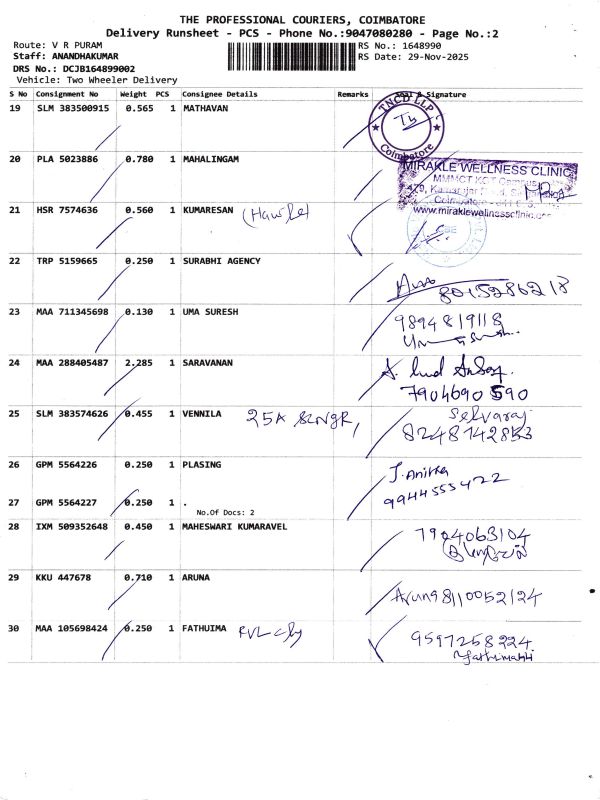 THE PROFESSIONAL COURIERS, COIMBATORE
Delivery Runsheet - PCS - Phone No.:9047080280 - Page No.:2
Route: V R PURAM
RS No.: 1648990
Staff: ANANDHAKUMAR
RS Date: 29-Nov-2025
DRS No.: DCJB164899002
Vehicle: Two Wheeler Delivery
S No Consignment No Weight PCS Consignee Details Remarks & Signature
19 SLM 383500915 0.565 1 MATHAVAN
TNCD LLP
Coimbatore
20 PLA 5023886 0.780 1 MAHALINGAM
MIRAKLE WELLNESS CLINIC
www.miraklewellnessclinic.com
21 HSR 7574636 0.560 1 KUMARESAN
22 TRP 5159665 0.250 1 SURABHI AGENCY
8015286213
23 MAA 711345698 0.130 1 UMA SURESH 9894819118
24 MAA 288405487 2.285 1 SARAVANAN
7904690590
25 SLM 383574626 0.455 1 VENNILA 25A Selvaraj
26 GPM 5564226 0.250 1 PLASING J. Anitha
9944555422
27 GPM 5564227 0.250 1 .
No.Of Docs: 2
28 IXM 509352648 0.450 1 MAHESWARI KUMARAVEL 7904063104
29 KKU 447678 0.710 1 ARUNA Aruna 98110052124
30 MAA 105698424 0.250 1 FATHUIMA 9597258224